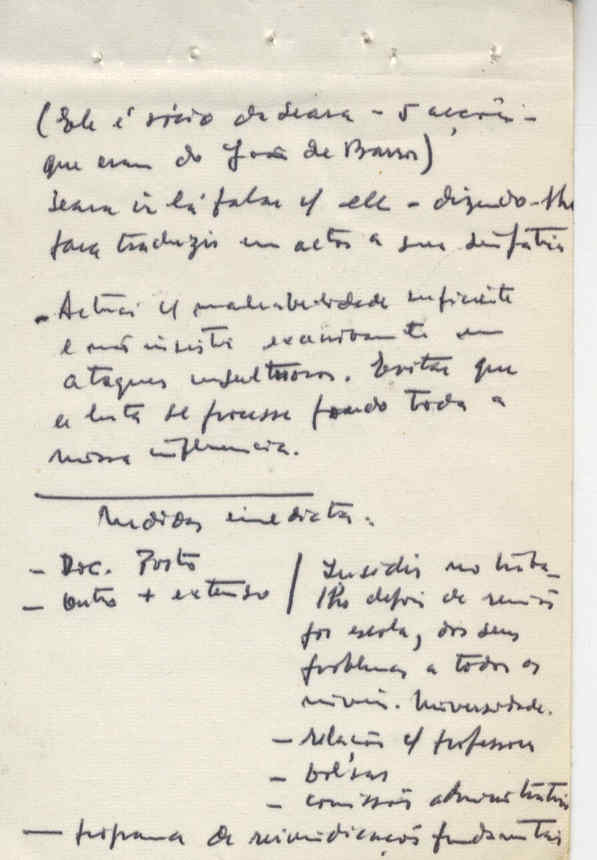 (Ele é sócio da Seara - 5 acções -
que eram do João de Barros)
Seara ir lá falar c/ ele - dizendo-lhe
para traduzir em actos a sua simpatia
- Actuar c/ maleabilidade suficiente
e não insistir exclusivamente em
ataques insultuosos. Evitar que
a luta se processe fora de toda a
nossa influencia.
Medidas imediatas:
- Doc. Porto
- outro + extenso / Insidir no traba-
lho depois de reunião
por escola, dos seus
problemas a todos os
niveis. Universidade.
- relação c/ professores
- bolsas
- comissões administrativas
- programa de reivindicações fundamentais